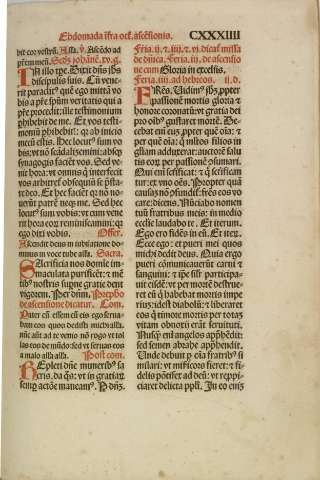 Ebdomada ifra oct. ascēsionis. CXXXIIII
bit cor vestrū. Alla. ℣. Ascēdo ad
p̄rem meū. Scd̄z johānē. xv. g.
IN illo tp̄e. Dixit dn̄s jhs̄
discipulis suis. Cū vene-
rit paraclit⁹ quē ego mittā vo
bis a p̄re sp̄m veritatis qui a
p̄re procedit: ille testimoniū
phibebit de me. Et vos testi-
moniū phibebit⁊: q̄ ab inicio
mecū estis. Hec locut⁹ sum vo
bis: vt nō scādalizemini: absq̄
synagogis faciēt vos. Sed ve-
nit hora: vt omnis q̄ interfecit
vos arbitret̄ obsequiū se p̄sta-
re deo. Et hec faciēt q̄ nō no-
verūt patrē neq̄ me. Sed hec
locut⁹ sum vobis: vt cum vene
rit hora eoꝝ reminiscamini: q̄
ego dixi vobis. Offer.
Ascendit deus in iubilatione do-
minus in voce tube alla. Sacra.
SAcrificia nos domīe im-
maculata purificēt: ⁊ mē
tib⁹ nostris supne gratie dent
vigorem. Per dn̄m. Prephō
de ascensione dicatur. Com.
Pater cū essem cū eis ego serua-
bam eos quos dedisti michi alla.
nūc aūt ad te venio nō rogo vt tol
las eos de mūdo: sed vt serues eos
a malo alla alla. Post com.
REpleti dn̄e muneribs̄ sa
cris. da qs̄: vt in gratiaꝝ
semꝑ actōe maneam⁹. P dn̄ꝫ.
Fria. ij. ⁊. iij. ⁊ vj. dicat̄ missa
de dn̄ica. Feria. iij. de ascensio
ne cum Gloria in excelsis.
Feria. iiij. ad hebreos. ij. d.
FRes. Vidim⁹ jhm̄ ꝓpter
passionē mortis gloria ⁊
honore coronatū: vt gratia dei
pro oībs̄ gustaret mortē. De-
cebat em̄ eūꝫ ꝓpter quē oīa: ⁊
per quē oīa: q̄ mltos filios in
gliam adduxerat: auctorē salu
tis eoꝝ per passionē ꝯsumari.
Qui em̄ sctificat: ⁊ q̄ sctifican
tur: ex vno oēs. Propter quā
causā nō ꝯfundit̄: fr̄es eos vo
care: dicens. Nūciabo nomen
tuū fratribus meis: in medio
ecclie laudabo te. Et iterum.
Ego ero fidēs in eū. Et iteꝝ.
Ecce ego: et pueri mei quos
michi dedit deus. Quia ergo
pueri cōmunicauerūt carni ⁊
sanguini: ⁊ ip̄e silr̄ participa-
uit eisdē: vt per mortē destrue-
ret eū q̄ habebat mortis impe
rius: idest diabolū: ⁊ liberaret
eos q̄ timore mortis per totaꝫ
vitam obnotii erāt seruituti.
Nusq̄ em̄ angelos app̄hendit:
sed semen abrahe app̄hendit.
Unde debuit ꝑ oīa fratrib⁹ si
milari: vt misericors fieret: ⁊ fi-
delis pontifex ad deū: vt reppi-
ciaret delicta ppl'i. In eo em̄